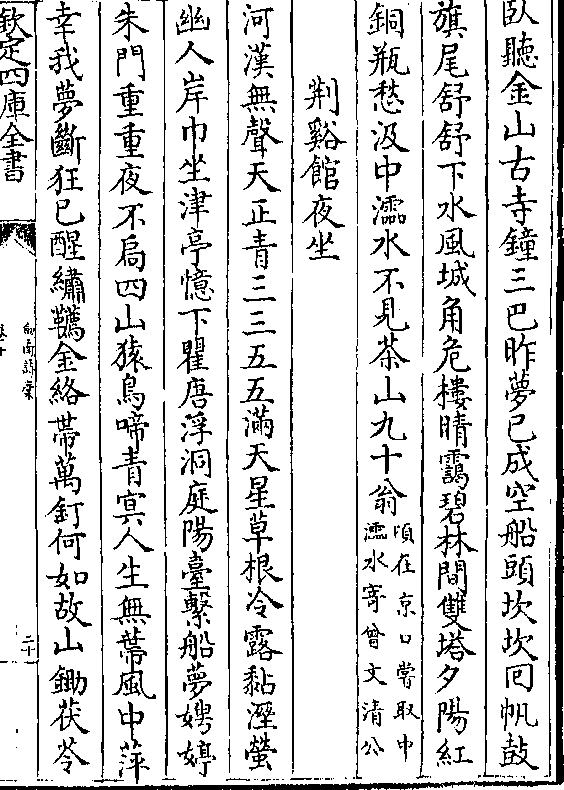 臥聽金山古寺鐘三巴昨夢已成空船頭坎坎回帆鼓
旗尾舒舒下水風城角危樓晴靄碧林間雙塔夕陽紅
銅瓶愁汲中濡水不見茶山九十翁頃在京口嘗取中
濡水寄曾文清公
荆谿館夜坐
河漢無聲天正青三三五五滿天星草根冷露黏溼螢
幽人岸巾坐津亭憶下瞿唐浮洞庭陽臺繫船夢娉婷
朱門重重夜不扃四山猿鳥啼青冥人生無蔕風中萍
幸我夢斷狂已醒繡韉金絡帶萬釘何如故山鋤茯苓
欽定四庫全書
劒南詩槀
卷十
二十